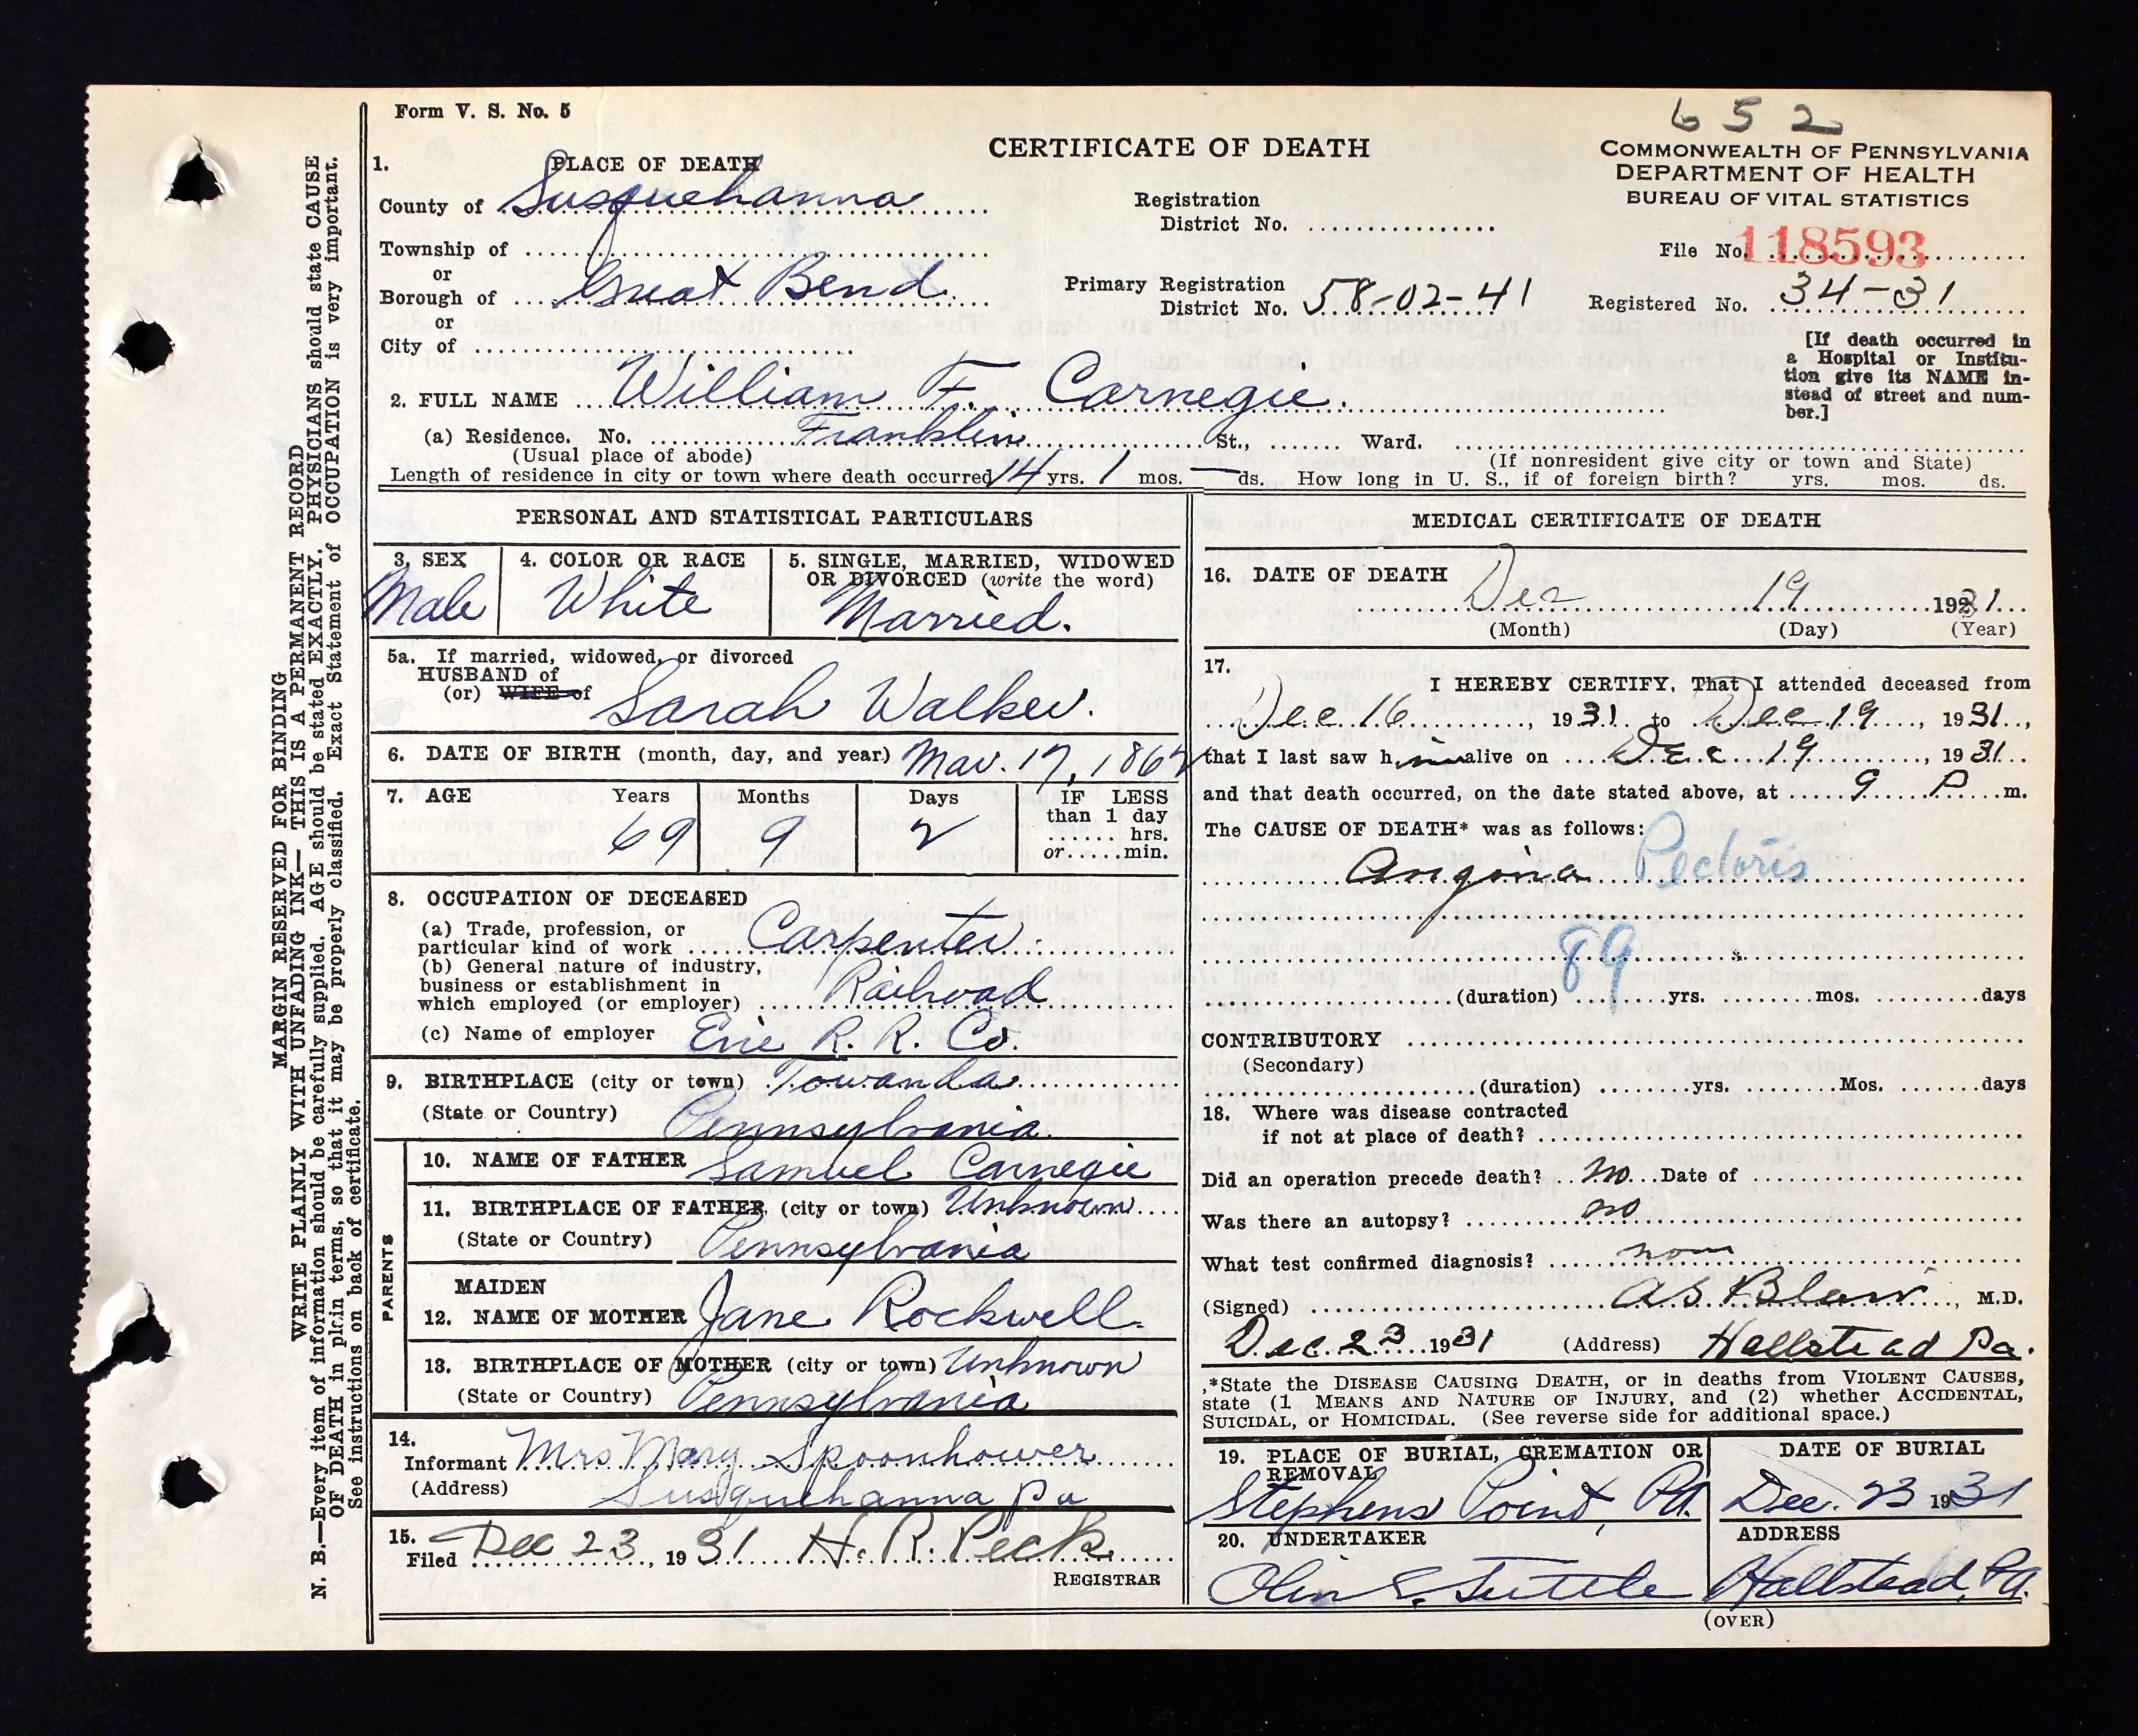 652
Form V. S. No. 5
CERTIFICATE OF DEATH
COMMONWEALTH OF PENNSYLVANIA
DEPARTMENT OF HEALTH
BUREAU OF VITAL STATISTICS
1. PLACE OF DEATH
County of Susquehanna
Township of
or
Borough of Great Bend
or
City of
Registration
District No.
Primary Registration
District No. 58-02-41
File No. 118593
Registered No. 34-31
[If death occurred in
a Hospital or Institu-
tion give its NAME in-
stead of street and num-
ber.]
2. FULL NAME William F. Carnegie.
(a) Residence. No. Franklin St., Ward.
(Usual place of abode) (If nonresident give city or town and State)
Length of residence in city or town where death occurred 14 yrs. 1 mos. — ds. How long in U. S., if of foreign birth? yrs. mos. ds.
PERSONAL AND STATISTICAL PARTICULARS
3. SEX
Male
4. COLOR OR RACE
White
5. SINGLE, MARRIED, WIDOWED
OR DIVORCED (write the word)
Married.
5a. If married, widowed, or divorced
HUSBAND of
(or) WIFE of
Sarah Walker.
6. DATE OF BIRTH (month, day, and year) Mar. 17, 1862
7. AGE Years Months Days
69 9 2
IF LESS
than 1 day
hrs.
or min.
8. OCCUPATION OF DECEASED
(a) Trade, profession, or
particular kind of work Carpenter.
(b) General nature of industry,
business or establishment in
which employed (or employer) Railroad
(c) Name of employer Erie R. R. Co.
9. BIRTHPLACE (city or town) Towanda
(State or Country) Pennsylvania.
PARENTS
10. NAME OF FATHER Samuel Carnegie
11. BIRTHPLACE OF FATHER (city or town) Unknown
(State or Country) Pennsylvania
MAIDEN
12. NAME OF MOTHER Jane Rockwell.
13. BIRTHPLACE OF MOTHER (city or town) Unknown
(State or Country) Pennsylvania
14.
Informant Mrs Mary Spoonhower
(Address) Susquehanna Pa
15.
Filed Dec 23, 1931 H. R. Peck
REGISTRAR
MEDICAL CERTIFICATE OF DEATH
16. DATE OF DEATH
Dec 19 1931
(Month) (Day) (Year)
17.
I HEREBY CERTIFY, That I attended deceased from
Dec 16, 1931 to Dec 19, 1931,
that I last saw him alive on Dec 19, 1931
and that death occurred, on the date stated above, at 9 P m.
The CAUSE OF DEATH* was as follows:
Angina Pectoris
89
(duration) yrs. mos. days
CONTRIBUTORY
(Secondary)
(duration) yrs. Mos. days
18. Where was disease contracted
if not at place of death?
Did an operation precede death? no Date of
Was there an autopsy? no
What test confirmed diagnosis?
(Signed) A S Blair, M.D.
Dec 23 1931 (Address) Hallstead Pa.
*State the DISEASE CAUSING DEATH, or in deaths from VIOLENT CAUSES,
state (1 MEANS AND NATURE OF INJURY, and (2) whether ACCIDENTAL,
SUICIDAL, or HOMICIDAL. (See reverse side for additional space.)
19. PLACE OF BURIAL, CREMATION OR
REMOVAL
Stephens Point, Pa.
DATE OF BURIAL
Dec. 23 1931
20. UNDERTAKER
Olin E. Tuttle
ADDRESS
Hallstead, Pa.
(OVER)
MARGIN RESERVED FOR BINDING
WRITE PLAINLY WITH UNFADING INK— THIS IS A PERMANENT RECORD
N. B.—Every item of information should be carefully supplied. AGE should be stated EXACTLY. PHYSICIANS should state CAUSE
OF DEATH in plain terms, so that it may be properly classified. Exact Statement of OCCUPATION is very important.
See instructions on back of certificate.